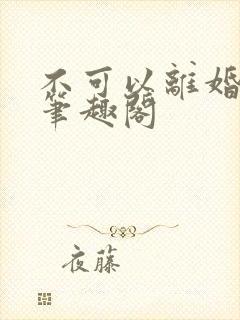 不可以離婚
筆趣閣
夜藤